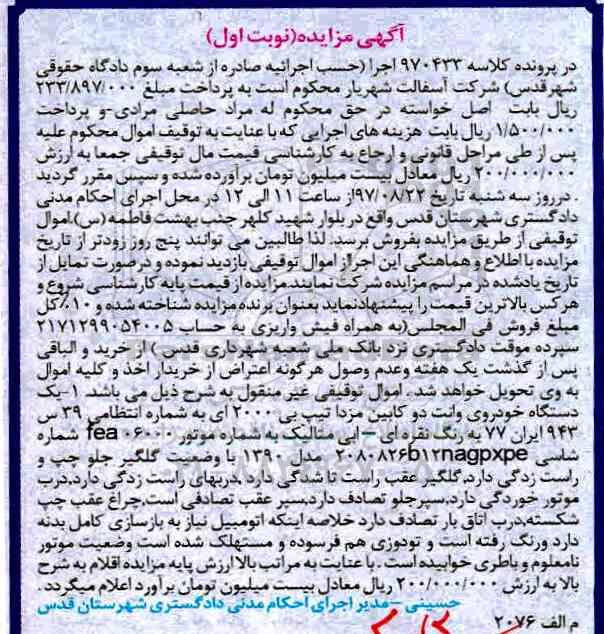 آگهی مزایده(نوبت اول)
در پرونده کلاسه ۹۷۰۴۳۳ اجرا (حسب اجرائیه صادره از شعبه سوم دادگاه حقوقی
شهرقدس) شرکت آسفالت شهریار محکوم است به پرداخت مبلغ ۲۳۳/۸۹۷/۰۰۰
ریال بابت اصل خواسته در حق محکوم له مراد حاصلی مرادی-و پرداخت
۱/۵۰۰/۰۰۰ ریال بابت هزینه های اجرایی که با عنایت به توقیف اموال محکوم علیه
پس از طی مراحل قانونی و ارجاع به کارشناسی قیمت مال توقیفی جمعا به ارزش
۲۰۰/۰۰۰/۰۰۰ ریال معادل بیست میلیون تومان برآورده شده و سپس مقرر گردید
. درروز سه شنبه تاریخ ۹۷/۰۸/۲۲از ساعت ۱۱ الی ۱۲ در محل اجرای احکام مدنی
دادگستری شهرستان قدس واقع در بلوار شهید کلهر جنب بهشت فاطمه (س)،اموال
توقیفی از طریق مزایده بفروش برسد. لذا طالبین می توانند پنج روز زودتر از تاریخ
مزایده با اطلاع و هماهنگی این اجرا از اموال توقیفی بازدید نموده و درصورت تمایل از
تاریخ یادشده در مراسم مزایده شرکت نمایند.مزایده از قیمت پایه کارشناسی شروع و
هرکس بالاترین قیمت را پیشنهادنماید بعنوان برنده مزایده شناخته شده و ۱۰٪کل
مبلغ فروش فی المجلس(به همراه فیش واریزی به حساب ۲۱۷۱۲۹۹۰۵۴۰۰۵
سپرده موقت دادگستری نزد بانک ملی شعبه شهرداری قدس ) از خرید و الباقی
پس از گذشت یک هفته وعدم وصول هرگونه اعتراض از خریدار اخذ و کلیه اموال
به وی تحویل خواهد شد . اموال توقیفی غیر منقول به شرح ذیل می باشد. ۱-یک
دستگاه خودروی وانت دو کابین مزدا تیپ بی ۲۰۰۰ ای به شماره انتظامی ۳۹ س
۹۴۳ ایران ۷۷ به رنگ نقره ای – آبی متالیک به شماره موتور fea ۰۶۰۰۰ شماره
شاسی ۲۰۸۰۸۲۶b۱۲nagpxpe مدل ۱۳۹۰ با وضعیت گلگیر جلو چپ و
راست زدگی دارد،گلگیر عقب راست تا شدگی دارد ،دربهای راست زدگی دارد،درب
موتور خوردگی دارد،سپرجلو تصادف دارد،سپر عقب تصادفی است،چراغ عقب چپ
شکسته،درب اتاق بار تصادف دارد خلاصه اینکه اتومبیل نیاز به بازسازی کامل بدنه
دارد ورنگ رفته است و تودوزی هم فرسوده و مستهلک شده است وضعیت موتور
نامعلوم و باطری خوابیده است . با عنایت به مراتب بالا ارزش پایه مزایده اقلام به شرح
بالا به ارزش ۲۰۰/۰۰۰/۰۰۰ ریال معادل بیست میلیون تومان برآورد اعلام میگردد.
حسینی –مدیر اجرای احکام مدنی دادگستری شهرستان قدس
م الف ۲۰۷۶